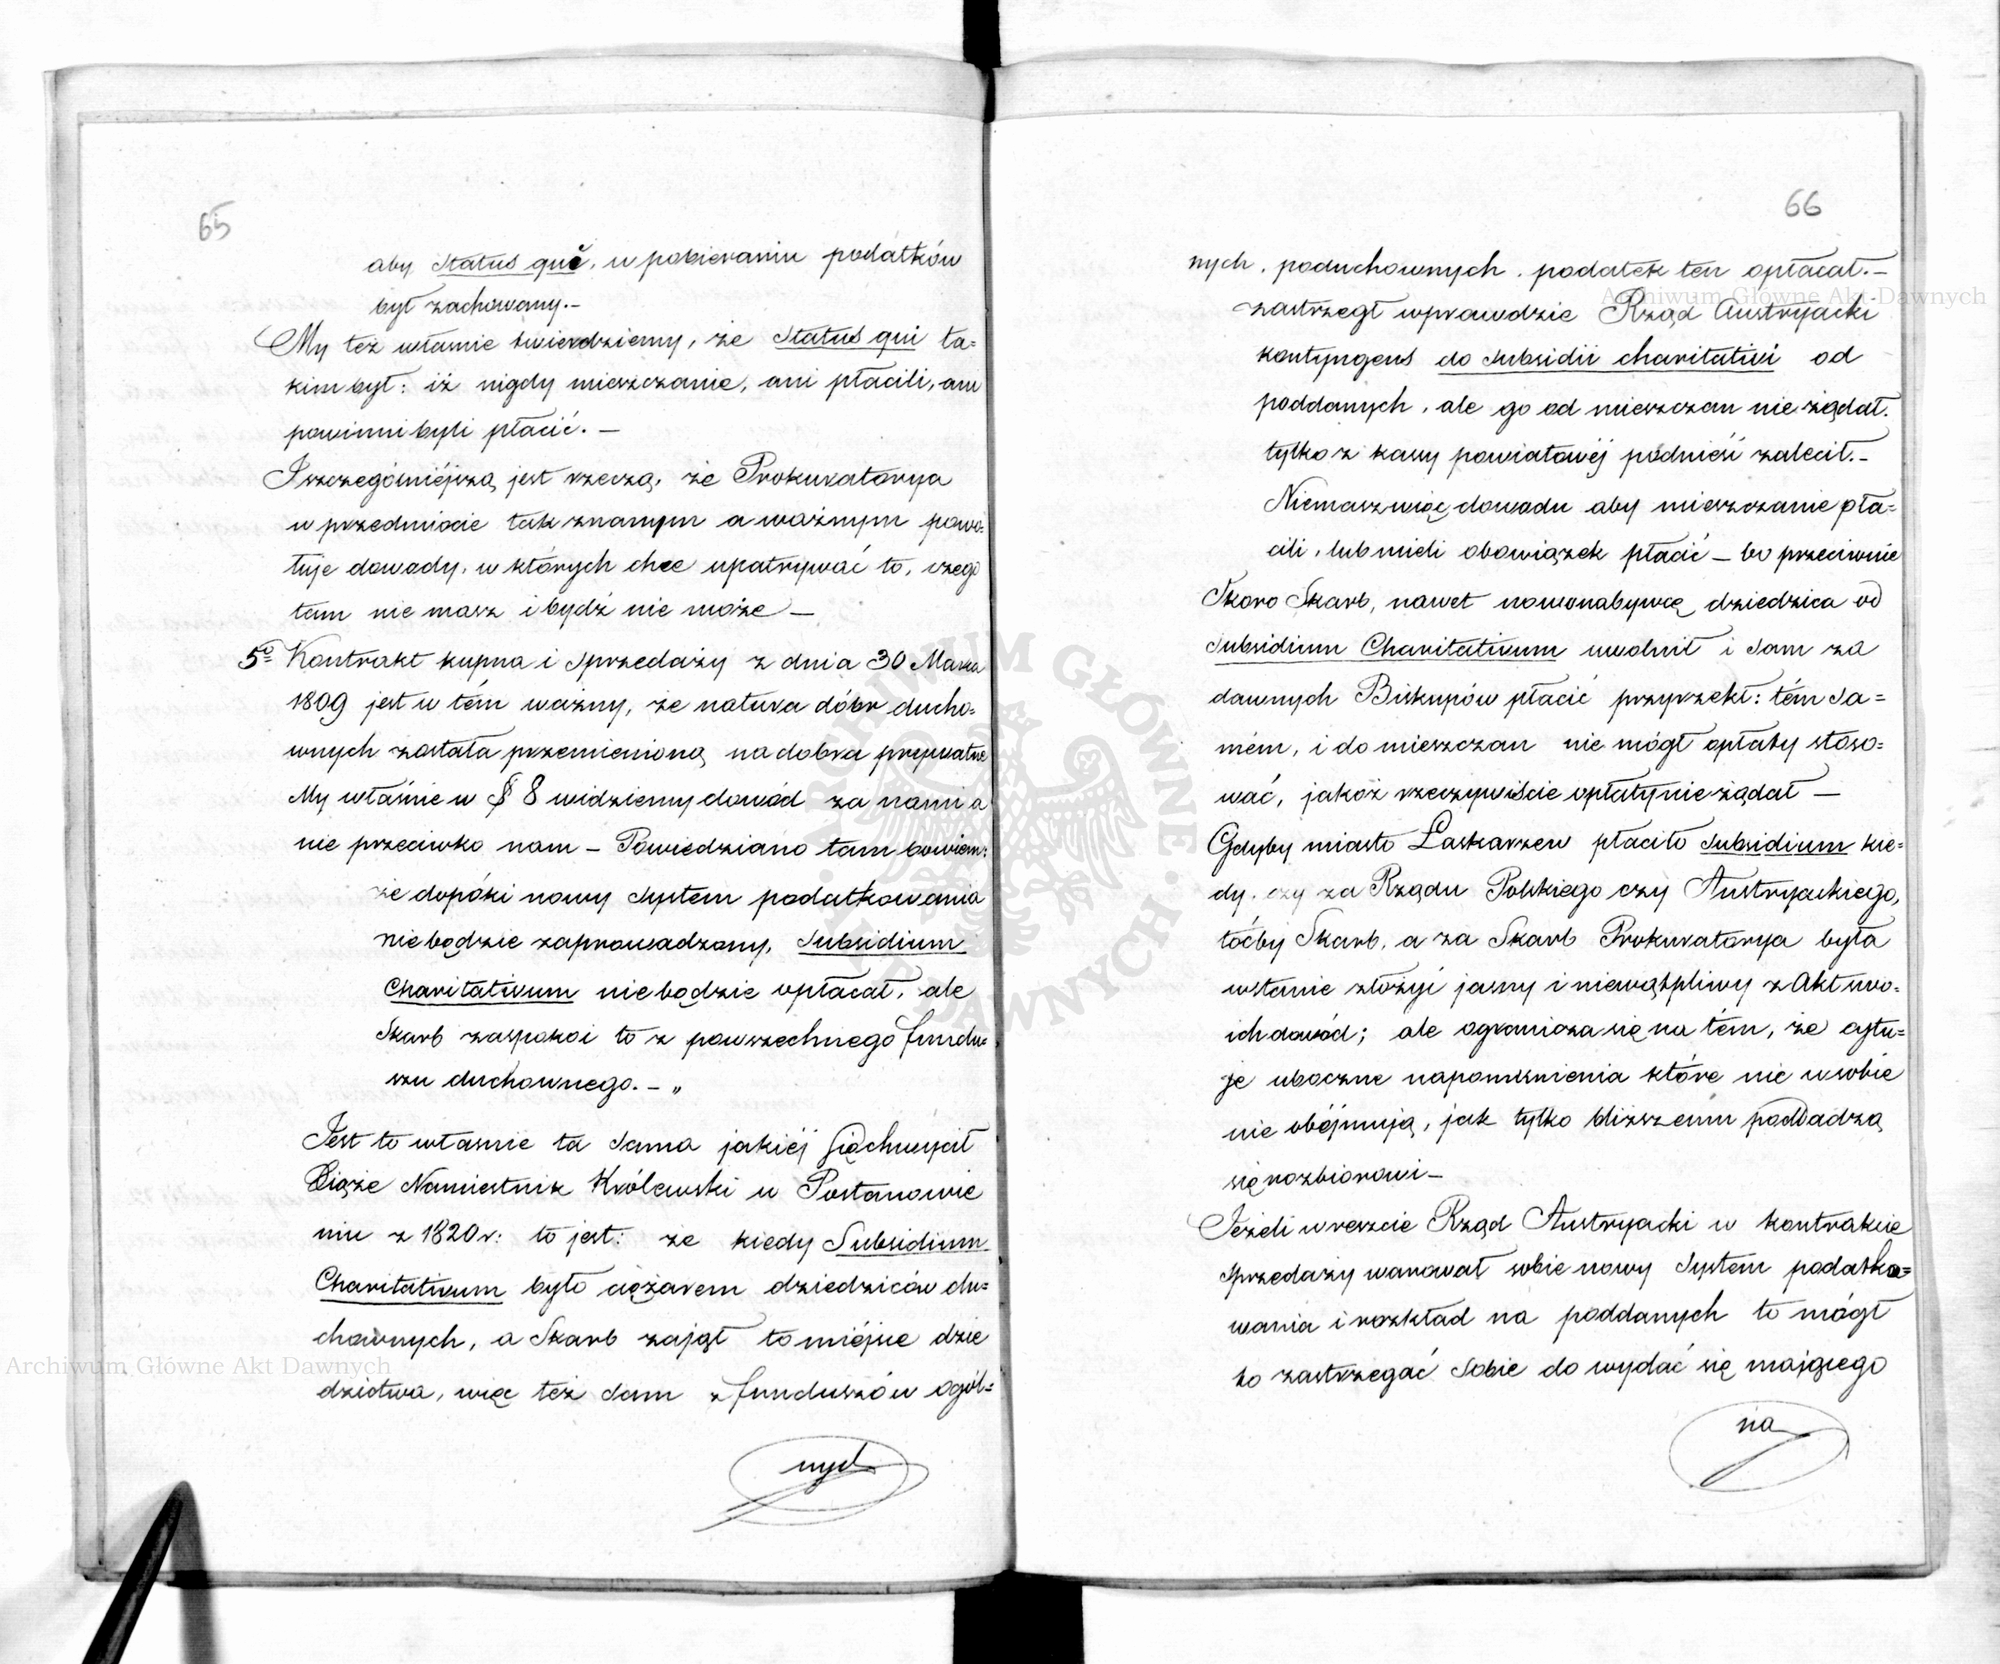 65
aby Status què, w pobieraniu podatków
był zachowany.–
My też własnie twierdziemy, że Status qui ta=
kim był: iż nigdy mieszczanie, ani płacili, ani
powinni byli płacić. –
I szczególniéjszą jest rzeczą, że Prokuratorya
w przedmiocie tak znanym a ważnym powo=
łuje dowody, w których chce upatrywać to, czego
tam nie masz i bydź nie może –
5º Kontrakt kupna i Sprzedaży z dnia 30 Marca
1809 jest w tém ważny, że natura dóbr ducho=
wnych została przemieniona, na dobra prywatne
My właśnie w § 8 widziemy dowód za nami a
nie przeciwko nam – Powiedziano tam bowiem:
że dopóki nowy System podatkowania
nie będzie zaprowadzony, Subsidium
Charitativum nie będzie opłacał, ale
Skarb zaspokoi to z powszechnego fundu=
szu duchownego. – „
Jest to własnie ta Sama jakiéj się chwycił
Xiąże Namiestnik Królewski w Postanowie
niu z 1820 r: to jest: że kiedy Subsidium
Charitativum było ciężarem dziedziców du=
chownych, a Skarb zajął to miéjsce dzie
dzictwa, więc też Sam z funduszów ogól=
nych
66
nych, poduchownych, podatek ten opłacał.–
Zastrzegł wprawdzie Rząd Austryacki
kontyngens do Subsidii charitativi od
poddanych, ale go od mieszczan nie żądał.
tylko z kassy powiatowéj podnieść zalecił.–
Niemasz więc dowodu aby mieszczanie pła=
cili, lub mieli obowiązek płacić – bo przeciwnie
Skoro Skarb, nawet nowonabywcę dziedzica od
Subsidium Charitativum uwolnił i Sam za
dawnych Biskupów płacić przyrzekł: tém Sa=
mém, i do mieszczan nie mógł opłaty stoso=
wać, jakoż rzeczywiście opłaty nie żądał –
Gdyby miasto Łaskarzew płaciło Subsidium kie=
dy, czy za Rządu Polskiego czy Austryackiego,
toćby Skarb, a za Skarb Prokuratorya była
wstanie złożyć jasny i niewątpliwy z Akt swo=
ich dowód; ale ogranicza się na tém, że cytu=
je uboczne napomknienia które nic w sobie
nie obéjmują, jak tylko bliższemu poddadzą
się rozbiorowi –
Jeżeli wreszcie Rząd Austryacki w kontrakcie
Sprzedaży warował sobie nowy System podatko=
wania i rozkład na poddanych to mógł
to zastrzegać Sobie do wydać się mającego
na
Archiwum Główne Akt Dawnych
Archiwum Główne Akt Dawnych
ARCHIWUM GŁÓWNE AKT DAWNYCH